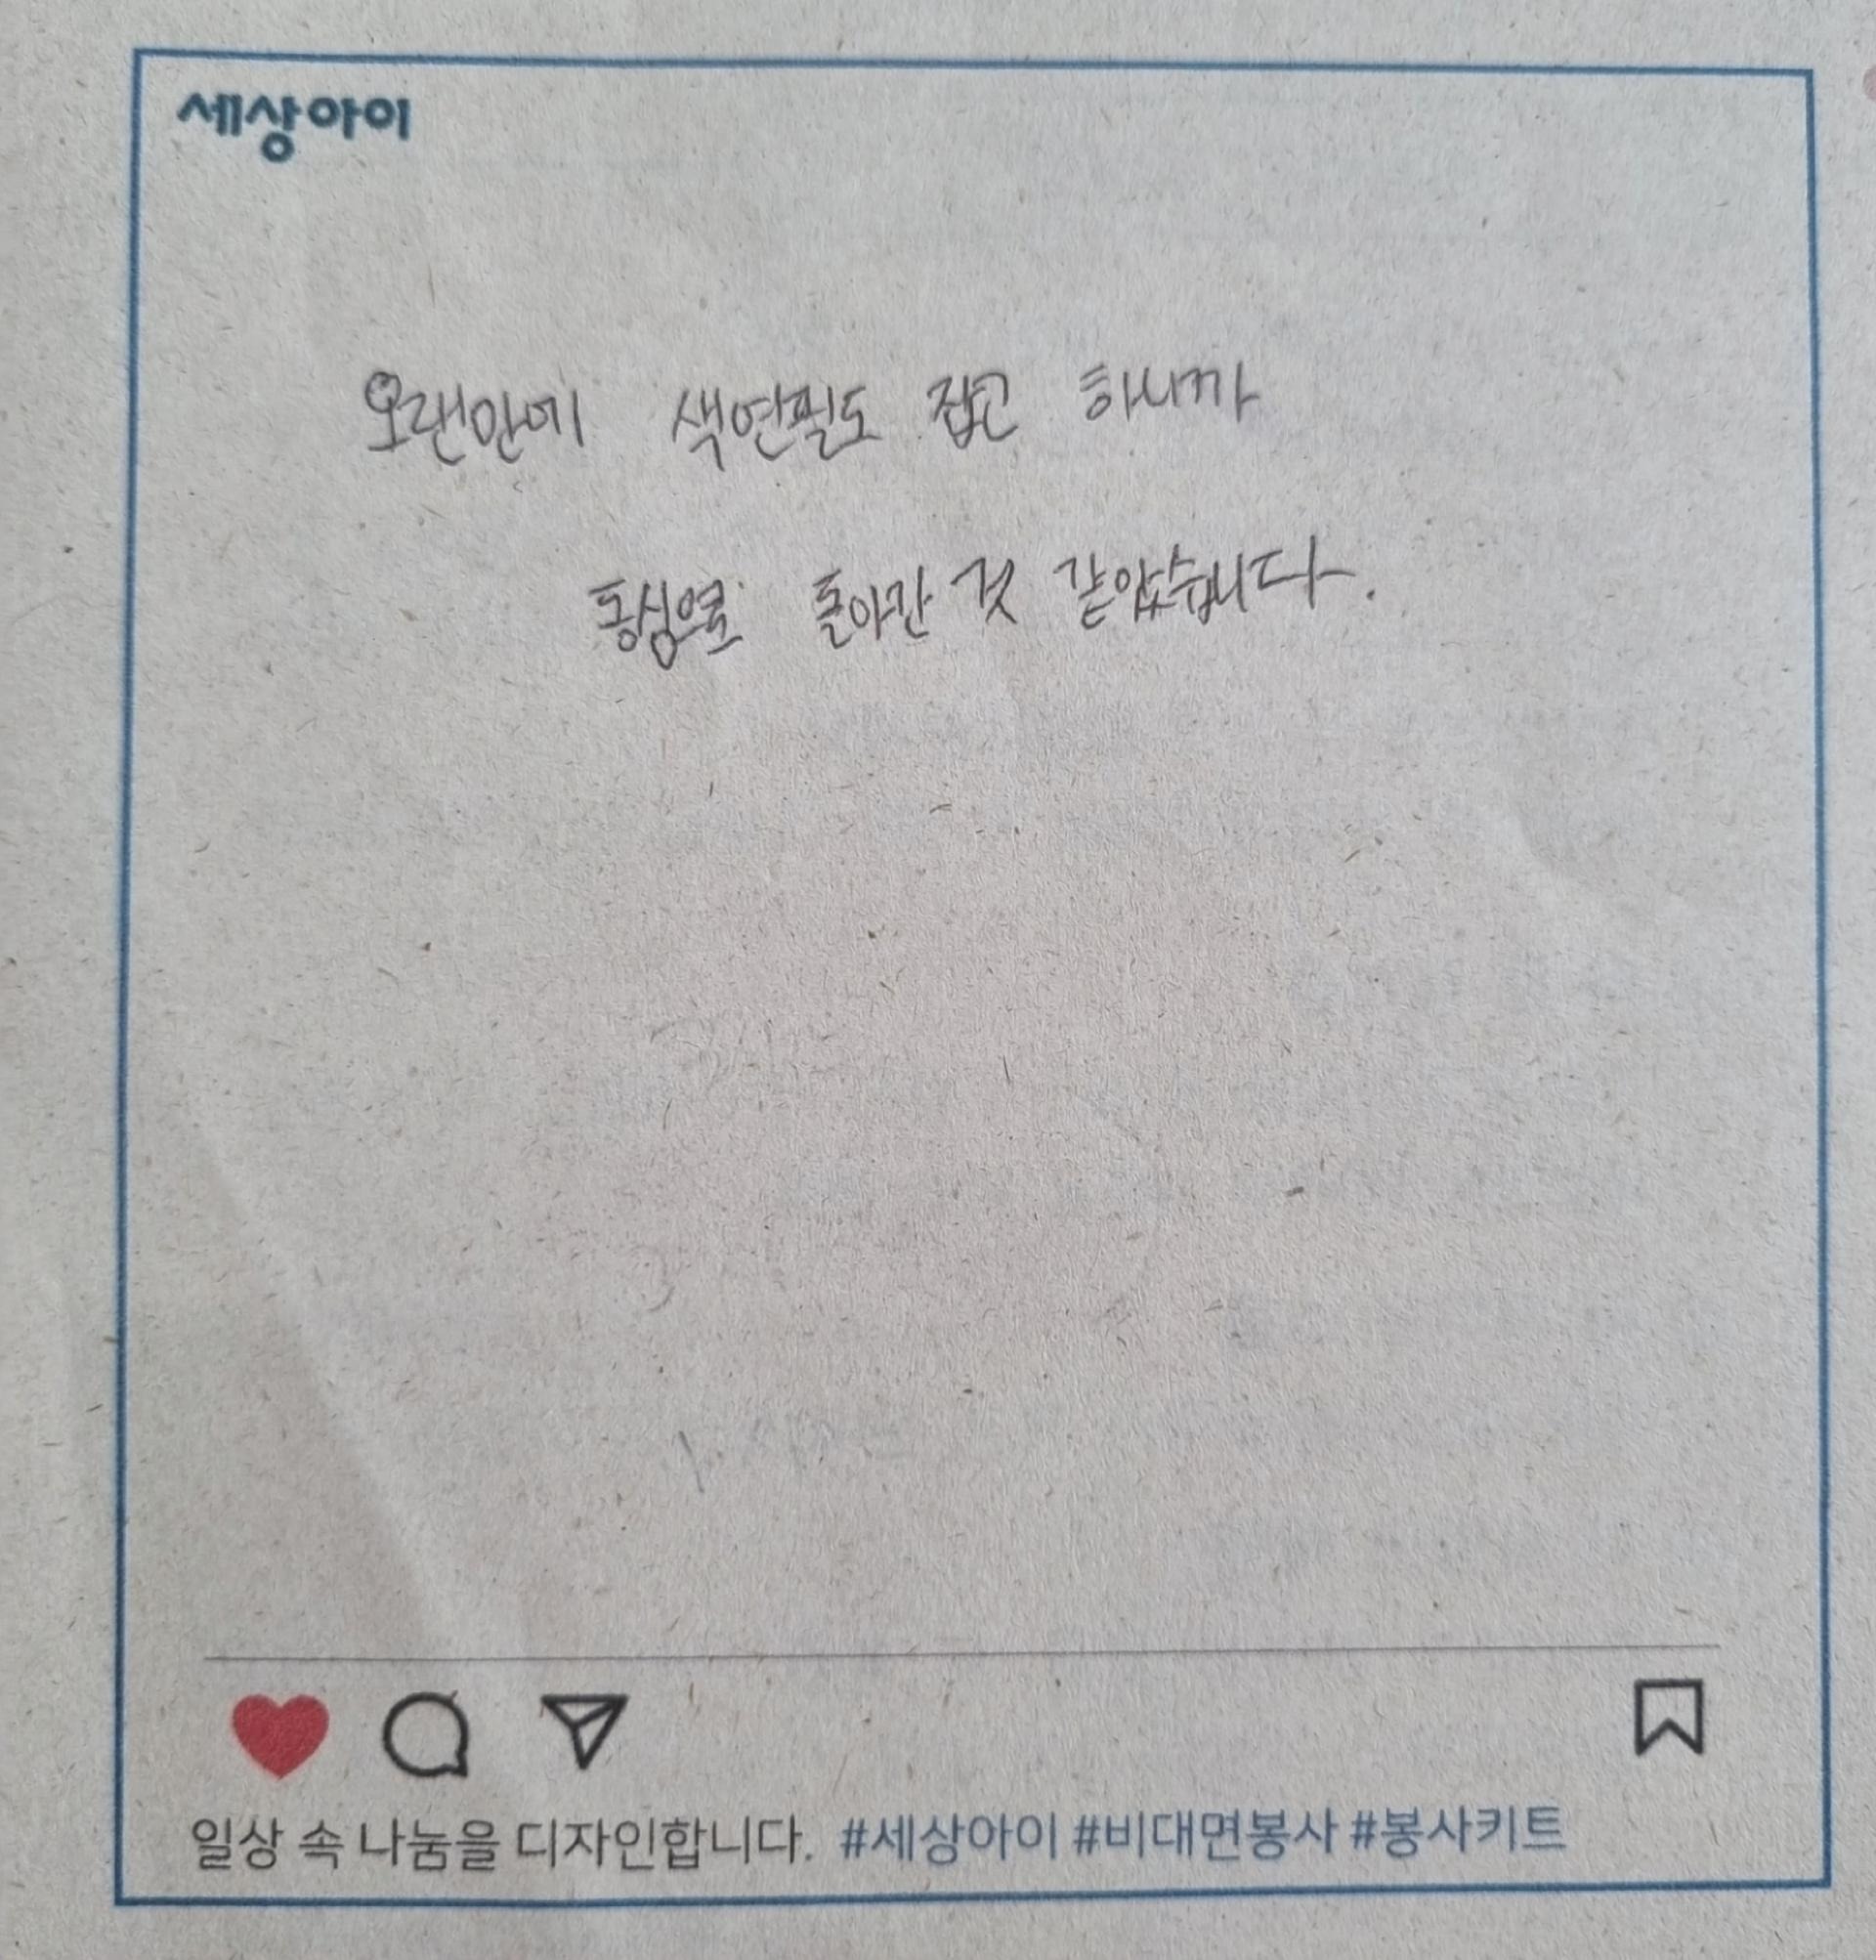 세상아이
오랜만에 색연필도 잡고 하니까
동심으로 돌아간 것 같았습니다.
일상 속 나눔을 디자인합니다. #세상아이 #비대면봉사 #봉사키트